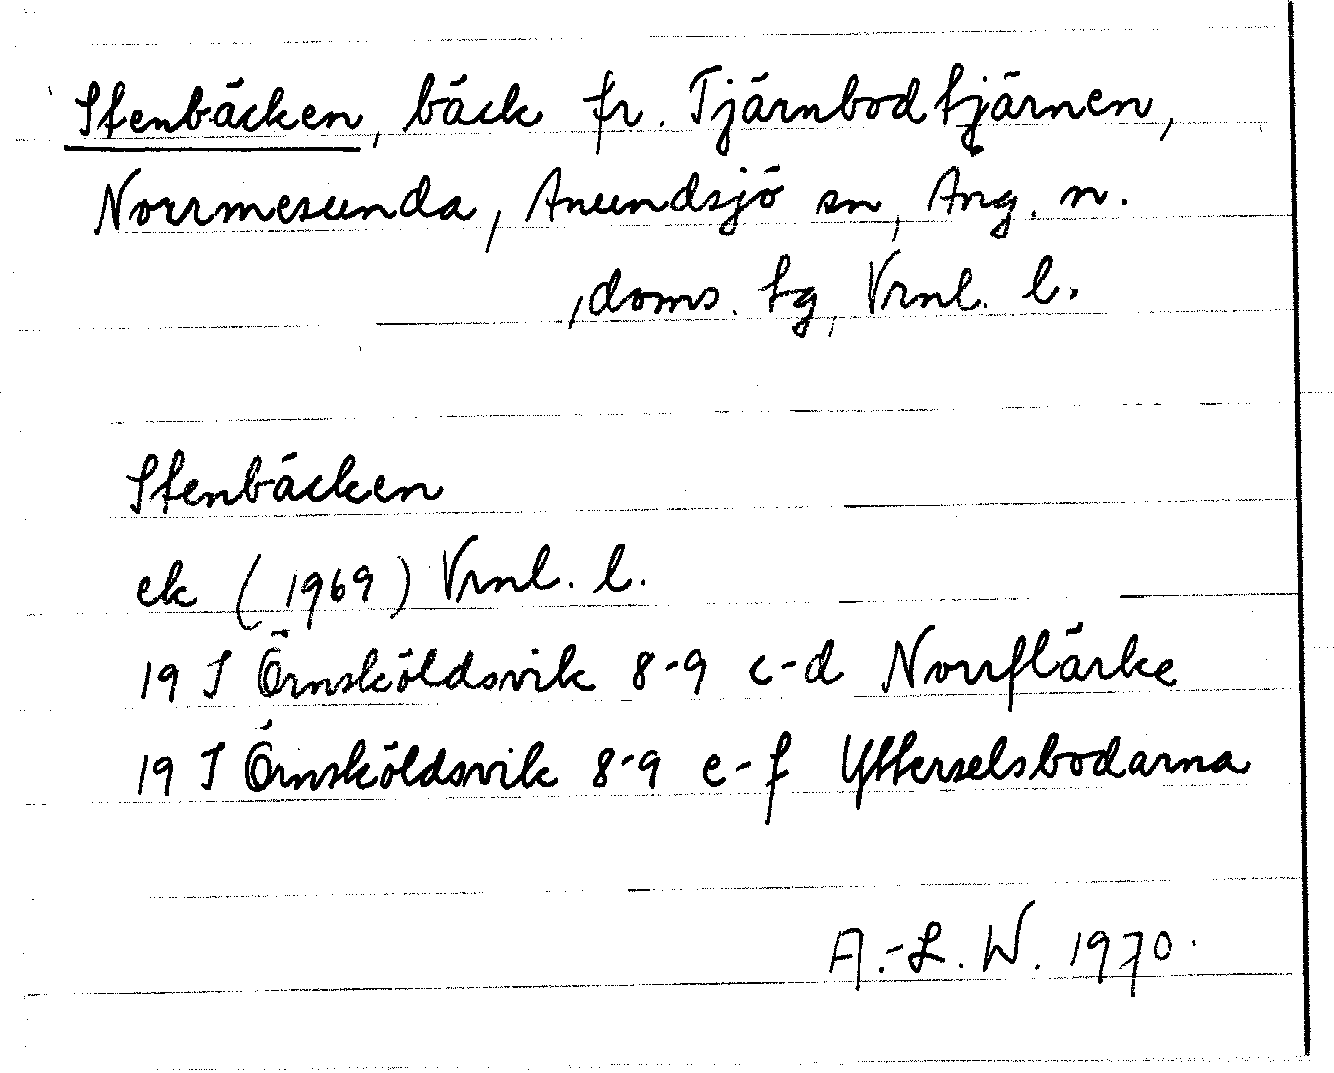 Stenbäcken, bäck fr. Tjärnbodtjärnen,
Norrmesunda, Anundsjö sn, Ång. n.
,doms. tg, Vrnl. l.
Stenbäcken
ek (1969) Vrnl. l.
19 I Örnsköldsvik 8-9 c-d Norrflärke
19 I Örnsköldsvik 8-9 e-f Ytterselsbodarna
A.-L. W. 1970.